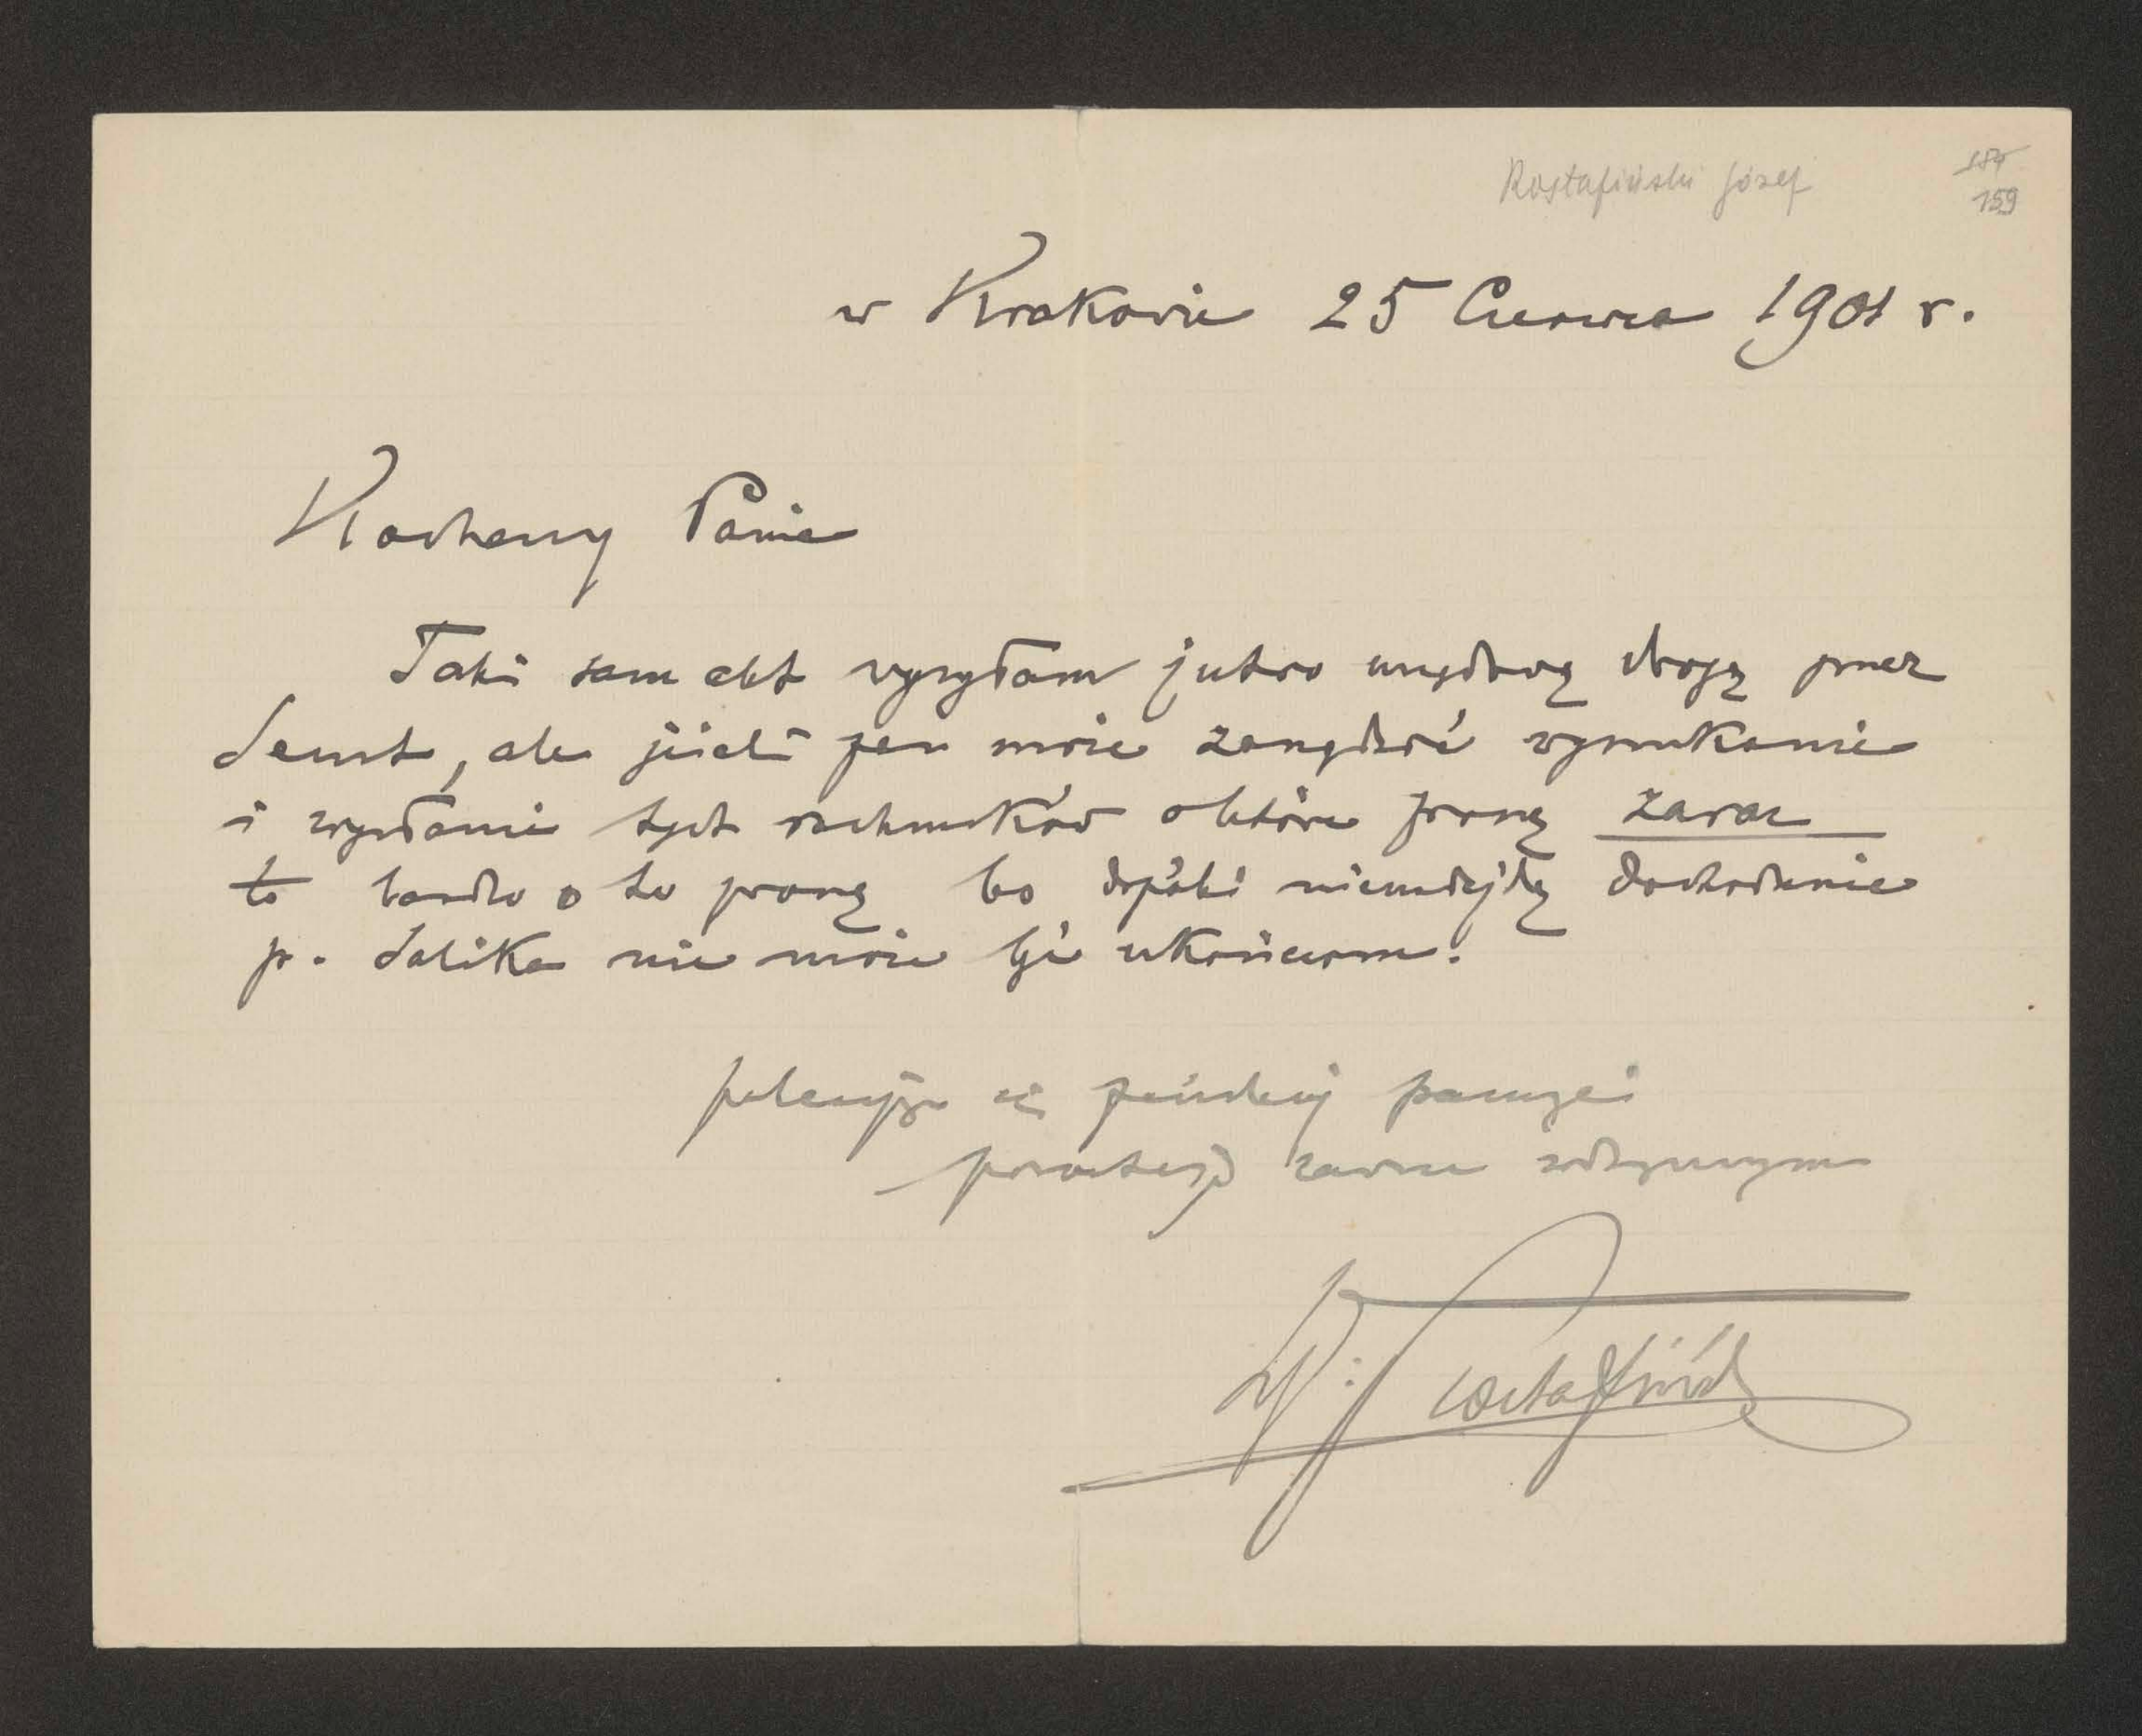 Rostafiński Józef
184
159
w Krakowie 25 Czerwca 1901 r.
Kochany Panie
Taki sam akt wysyłam jutro urzędową drogą przez
Senat, ale jeżeli pan może zarządzić wyszukanie
i wysłanie tych rachunków o które proszę zaraz
to bardzo o to proszę bo dopóki nie nadejdą dochodzenie
p. Salika nie może być ukończone.
polecając się pańskiej pamięci
pozostaję zawsze życzliwym
Rostafiński